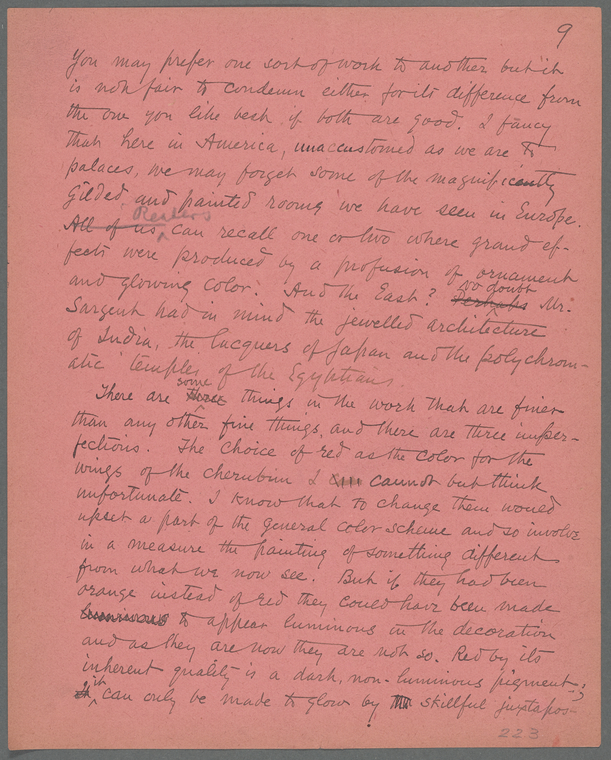 9
You may prefer one sort of work to another but it
is not fair to condemn either for its difference from
the one you like best if both are good. I fancy
that here in America, unaccustomed as we are to
palaces, we may forget some of the magnificently
gilded and painted rooms we have seen in Europe.
Readers
All of us can recall one or two where grand ef-
fects were produced by a profusion of ornament
and glowing color. And the East? Perhaps Mr.
no doubt
Sargent had in mind the jewelled architecture
of India, the lacquers of Japan and the polychrom-
atic temples of the Egyptians.
some
There are three things in the work that are finer
than any other fine things, and there are three imper-
fections. The choice of red as the color for the
wings of the cherubim I cannot but think
unfortunate. I know that to change them would
upset a part of the general color scheme and so involve
in a measure the painting of something different
from what we now see. But if they had been
orange instead of red they could have been made
luminous to appear luminous in the decoration
and as they are now they are not so. Red by its
inherent quality is a dark, non-luminous pigment;
it
it can only be made to glow by skillful juxtapos-
223